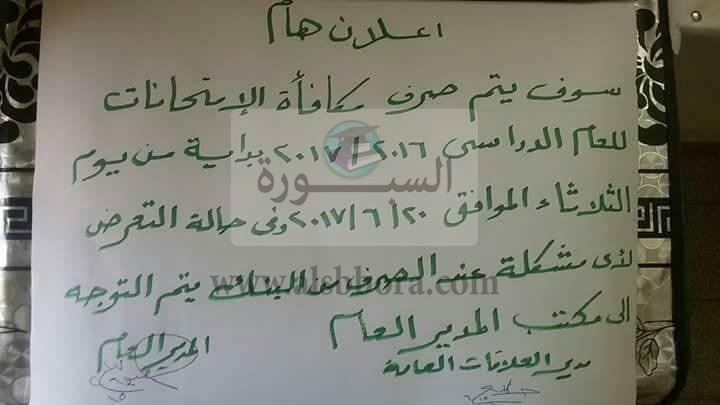 اعلان هام
سوف يتم صرف مكافأة الإمتحانات
للعام الدراسى ٢٠١٦ / ٢٠١٧ بداية من يوم
الثلاثاء الموافق ٢٠ / ٦ / ٢٠١٧ وفى حالة التعرض
لأى مشكلة عند الصرف من البنك يتم التوجه
الى مكتب المدير العام
مدير العلاقات العامة
المدير العام
السبورة
www.alsbbora.com